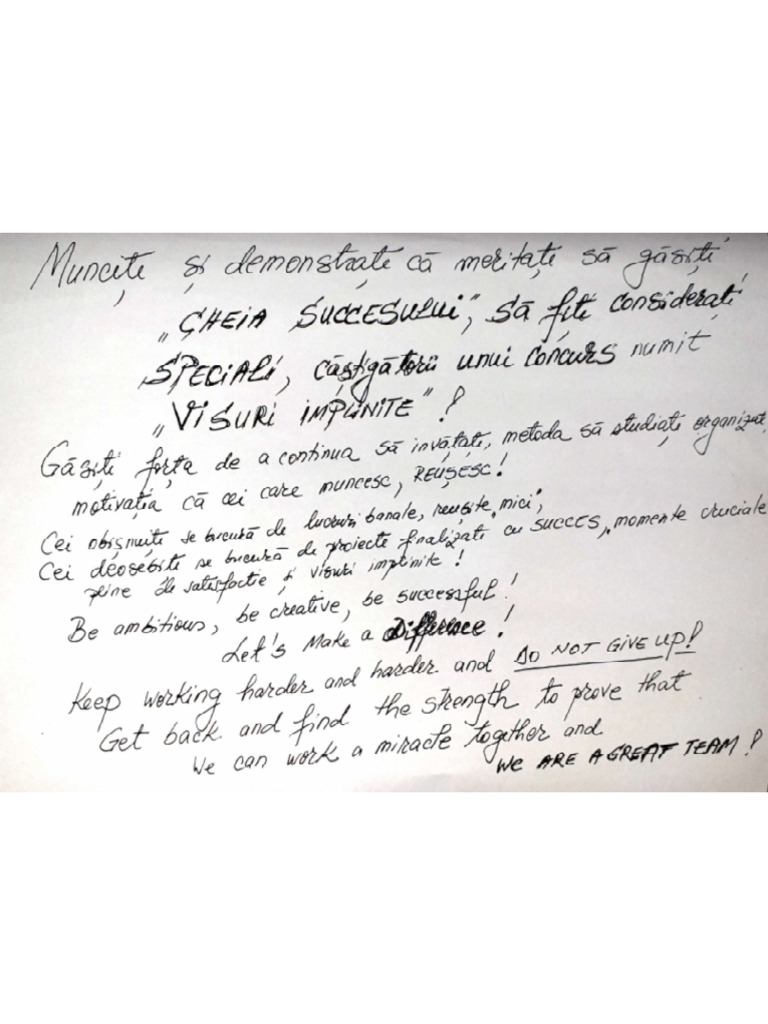 Munciți și demonstrați că meritați să găsiți
„CHEIA SUCCESULUI”, să fiți considerați
SPECIALI, câștigătorii unui concurs numit
„VISURI ÎMPLINITE”!
Găsiți forța de a continua să învățați, metoda să studiați organizat,
motivația că cei care muncesc, REUȘESC!
Cei obișnuiți se bucură de lucruri banale, reușite „mici”;
Cei deosebiți se bucură de proiecte finalizate cu SUCCES, momente cruciale
pline de satisfacție și visuri împlinite!
Be ambitious, be creative, be successful!
Let's Make a Difference!
Keep working harder and harder and DO NOT GIVE UP!
Get back and find the strength to prove that
We can work a miracle together and
We ARE A GREAT TEAM!